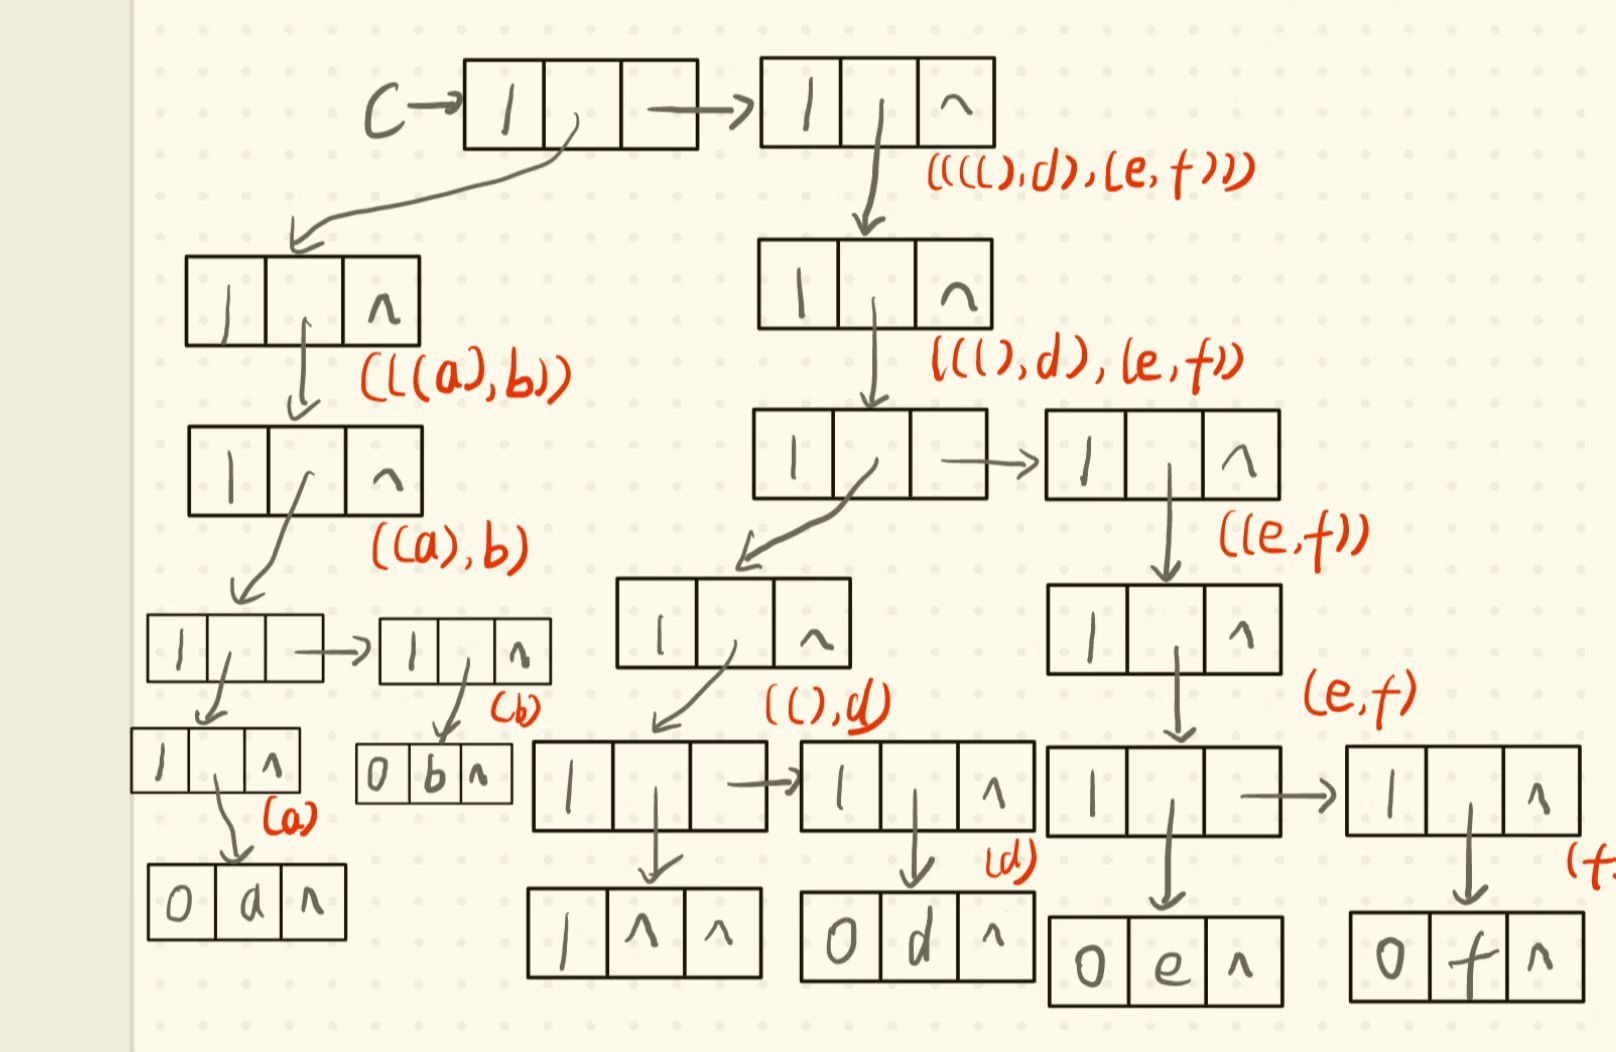 C 1 1 ^
((((),d),(e,f)))
1 ^ 1 ^
(((a),b)) (((),d),(e,f))
1 ^ 1 1 ^
((a),b) ((e,f))
1 1 ^ 1 ^ 1 ^
(b) ((),d) (e,f)
1 ^ 0 b ^ 1 1 ^ 1 1 ^
(a) (d) (f
0 a ^ 1 ^ ^ 0 d ^ 0 e ^ 0 f ^